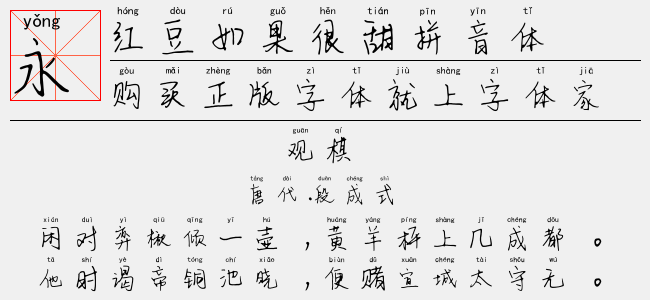 yǒng
永
hóng dòu rú guǒ hěn tián pīn yīn tǐ
红豆如果很甜拼音体
gòu mǎi zhèng bǎn zì tǐ jiù shàng zì tǐ jiā
购买正版字体就上字体家
guān qí
观棋
táng dài duàn chéng shì
唐代.段成式
xián duì yì qiū qīng yī hú huáng yáng píng shàng jǐ chéng dōu
闲对弈楸倾一壶,黄羊枰上几成都。
tā shí yè dì tóng chí xiǎo biàn dǔ xuān chéng tài shǒu wú
他时谒帝铜池晓,便赌宣城太守无。